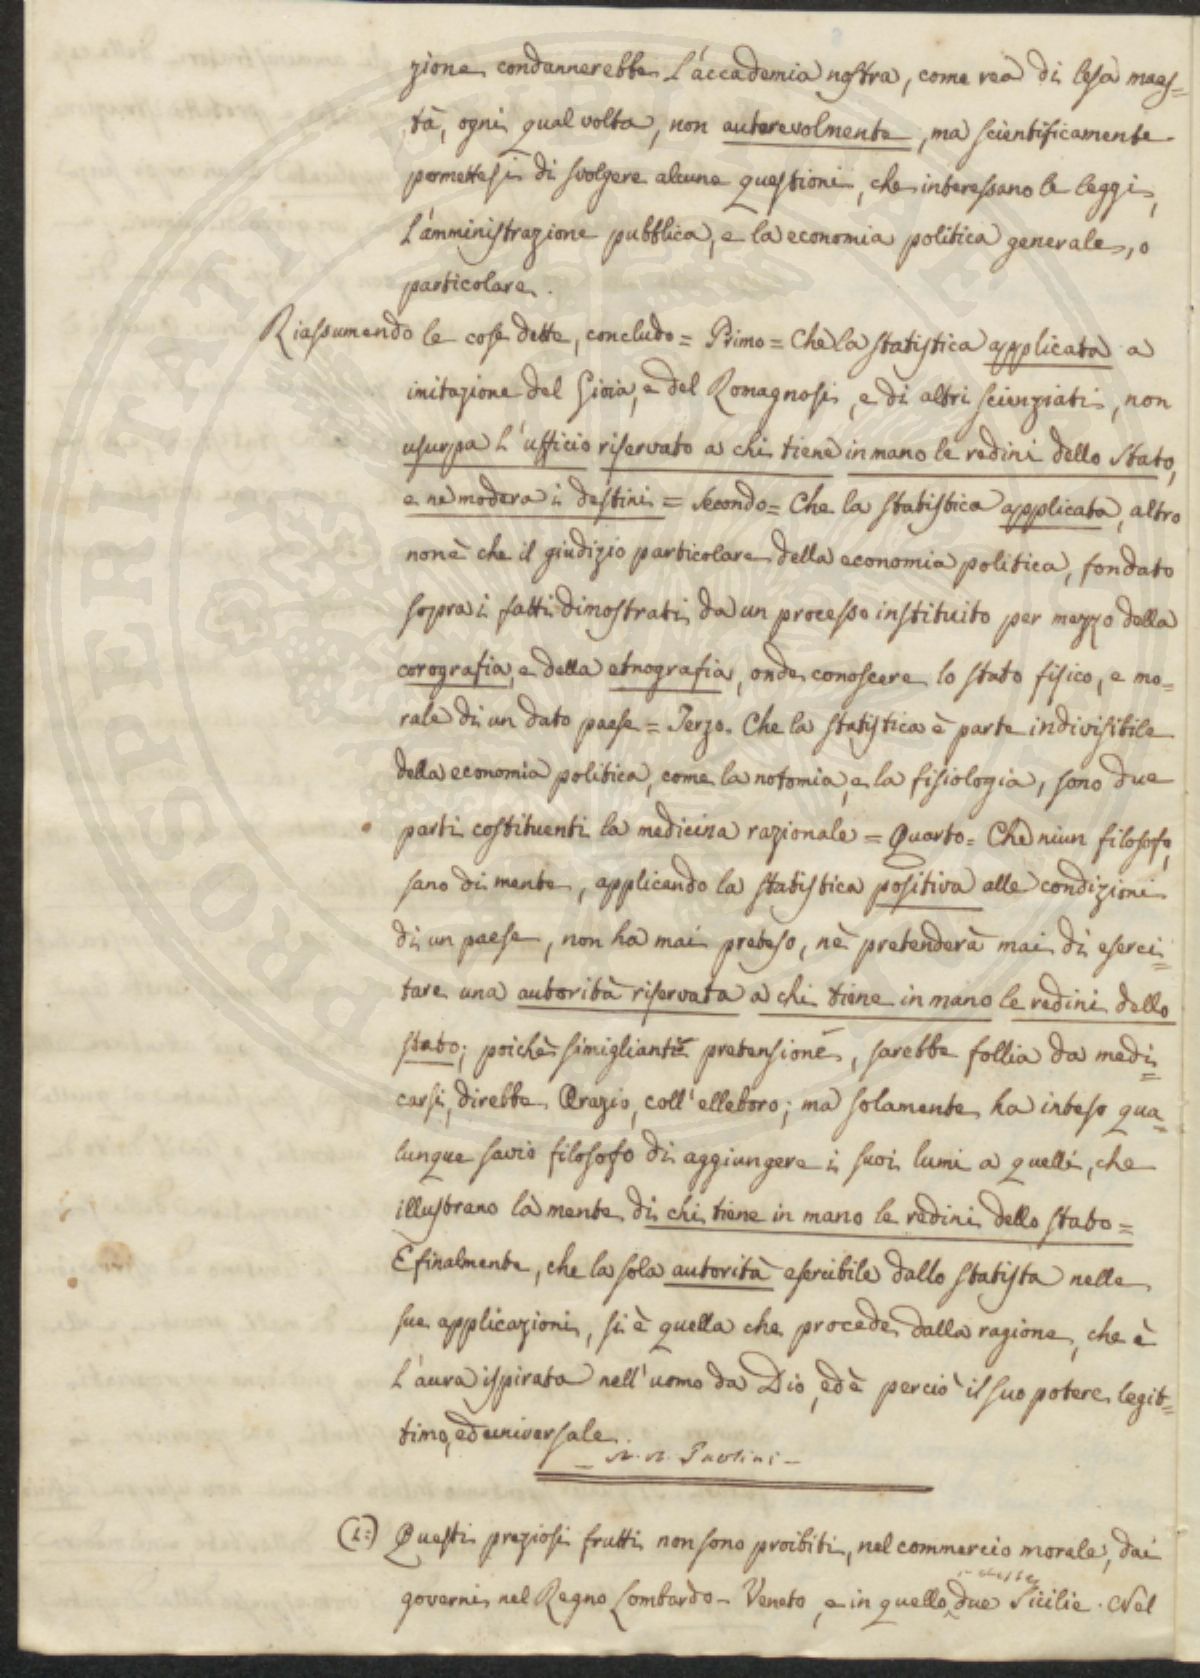 zione condannerebbe l'accademia nostra, come rea di lesa maes=
tà, ogni qual volta, non autorevolmente, ma scientificamente
permettesi di svolgere alcune questioni, che interessano le leggi,
l'amministrazione pubblica, e la economia politica generale, o
particolare.
Riassumendo le cose dette, concludo = Primo = Che la statistica applicata a
imitazione del Gioia, e del Romagnosi, e di altri scienziati, non
usurpa l'ufficio riservato a chi tiene in mano le redini dello stato,
e ne modera i destini = Secondo = Che la statistica applicata, altro
non è che il giudizio particolare della economia politica, fondato
sopra i fatti dimostrati da un processo instituito per mezzo della
corografia, e della etnografia, onde conoscere lo stato fisico, e mo=
rale di un dato paese = Terzo. Che la statistica è parte indivisibile
della economia politica, come la notomia, e la fisiologia, sono due
parti costituenti la medicina razionale = Quarto = Che niun filosofo,
sano di mente, applicando la statistica positiva alle condizioni
di un paese, non ha mai preteso, nè pretenderà mai di eserci=
tare una autorità riservata a chi tiene in mano le redini dello
stato; poichè simigliante pretensione, sarebbe follia da medi=
carsi, direbbe Orazio, coll'elleboro; ma solamente ha inteso qua=
lunque savio filosofo di aggiungere i suoi lumi a quelli, che
illustrano la mente di chi tiene in mano le redini dello stato =
E finalmente, che la sola autorità esercibile dallo statista nelle
sue applicazioni, si è quella che procede dalla ragione, che è
l'aura ispirata nell'uomo da Dio, ed è perciò il suo potere legit=
timo, ed universale.
Paolini
(1=) Questi preziosi frutti non sono proibiti, nel commercio morale, dai
governi nel Regno Lombardo-Veneto, e in quello due Sicilie. Nel
PROSPERITATI PUBLICAE